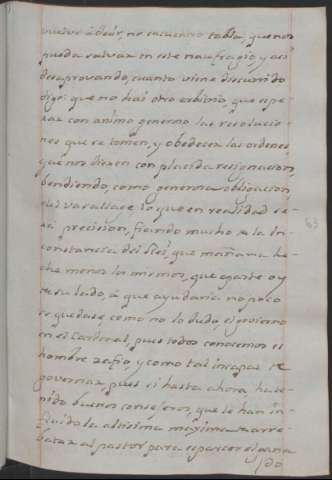 vuelvo à decir, no encuentro tabla, que nos
pueda salvar en este naufragio, y asi
desaprovando, cuanto viene discurrido
digo: que no hai otro arbitrio, que espe-
rar con animo generoso las resolucio-
nes que se tomen, y obedecer las ordenes
que nos dieren con placida resignacion,
bendiendo, como generosa obligacion
del varallage, lo que en realidad se-
rà precision, fiando mucho de la in-
constancia del Rei, que mañana he-
che menos lo mismo, que aparte oy
de su lado, à que ayudaria no poco
se quedase, como no lo dudo, el govierno
en el Cardenal, pues todos conocemos es
hombre zafio, y como tal incapaz de
governar, pues si hasta ahora ha te-
nido buenos consejeros, que le han in-
fluido la altisima maxima de arre-
batar al pastor para esparcer el gana
do
63